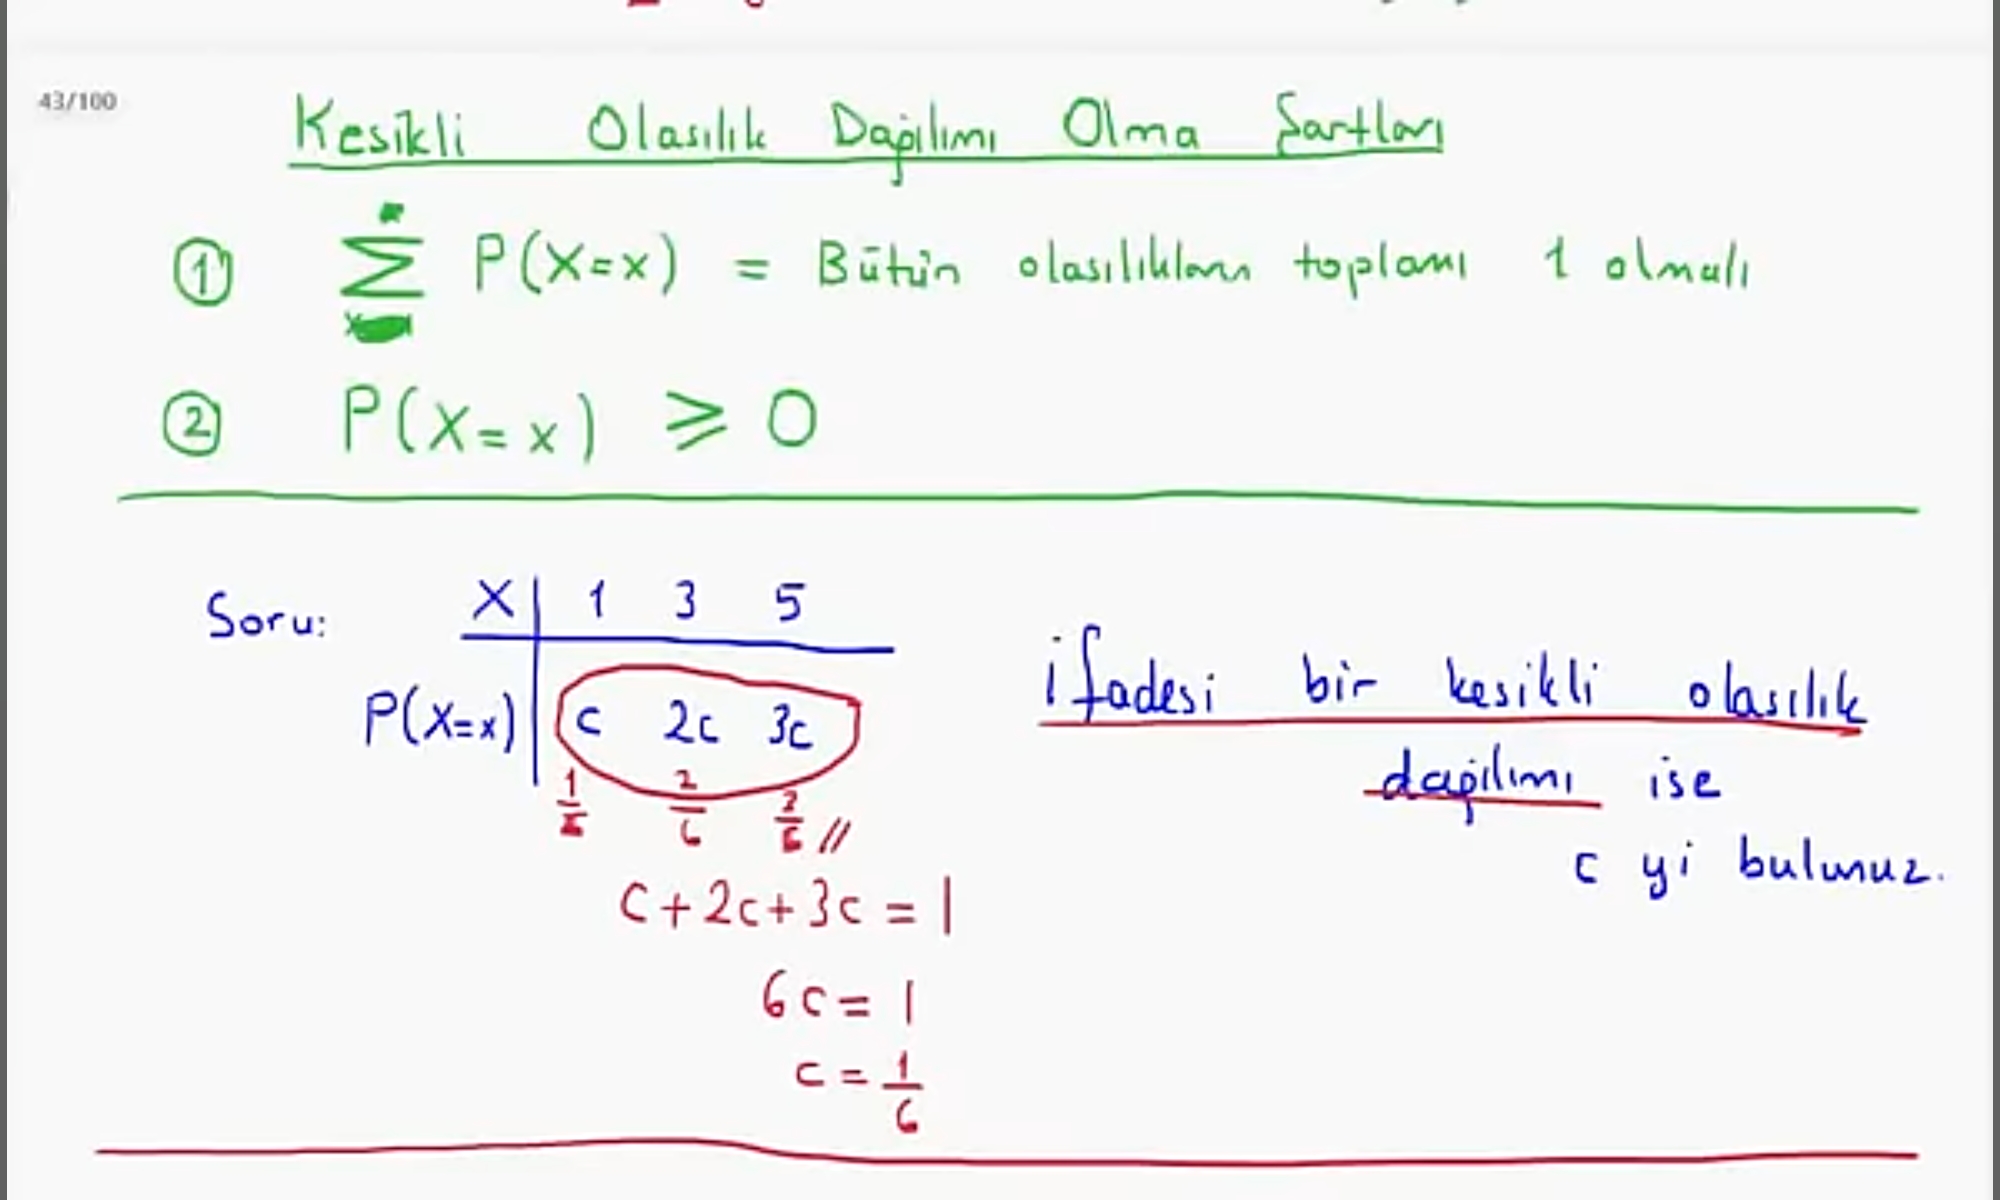 43/100
Kesikli Olasılık Dağılımı Olma Şartları
① ∑ P(X=x) = Bütün olasılıkların toplamı 1 olmalı
② P(X=x) ⩾ 0
Soru:
X | 1 3 5
P(X=x) | c 2c 3c
2/6
c+2c+3c = 1
6c = 1
c = 1/6
ifadesi bir kesikli olasılık
dağılımı ise
c yi bulunuz.